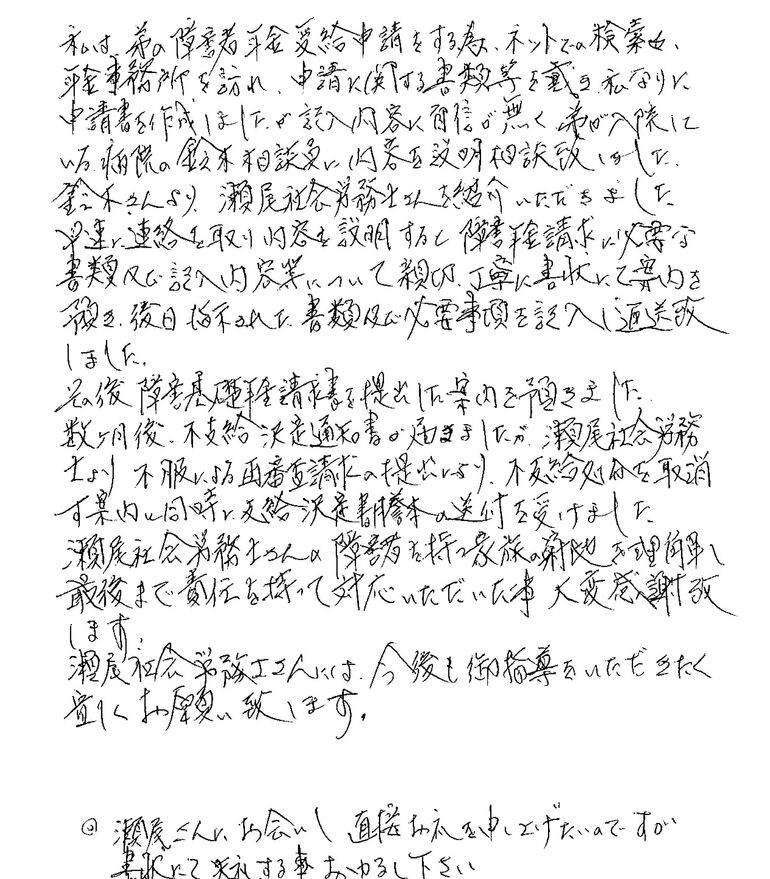 私は、弟の障害者年金受給申請をする為、ネットでの検索や、
年金事務所を訪れ、申請に関する書類等を戴き私なりに
申請書を作成しましたが記入内容に自信が無く弟が入院して
いる病院の鈴木相談員に内容を説明相談致しました。
鈴木さんより、瀬尾社会労務士さんを紹介いただきました
早速に連絡を取り内容を説明すると障害年金請求に必要な
書類及び記入内容等について親切、丁寧に書状にて案内を
頂き、後日指示された書類及び必要事項を記入し返送致
しました。
その後障害基礎年金請求書を提出した案内を頂きました
数ヶ月後、不支給決定通知書が届きましたが、瀬尾社会労務
士より不服による再審査請求の提出により、不支給処分を取消
す案内と同時に支給決定書謄本の送付を受けました
瀬尾社会労務士さんの障害者を持つ家族の窮地を理解し
最後まで責任を持って対応いただいた事大変感謝致
します。
瀬尾社会労務士さんには、今後も御指導をいただきたく
宜しくお願い致します。
瀬尾さんにお会いし直接お礼を申し上げたいのですが
書状にて失礼する事おゆるし下さい